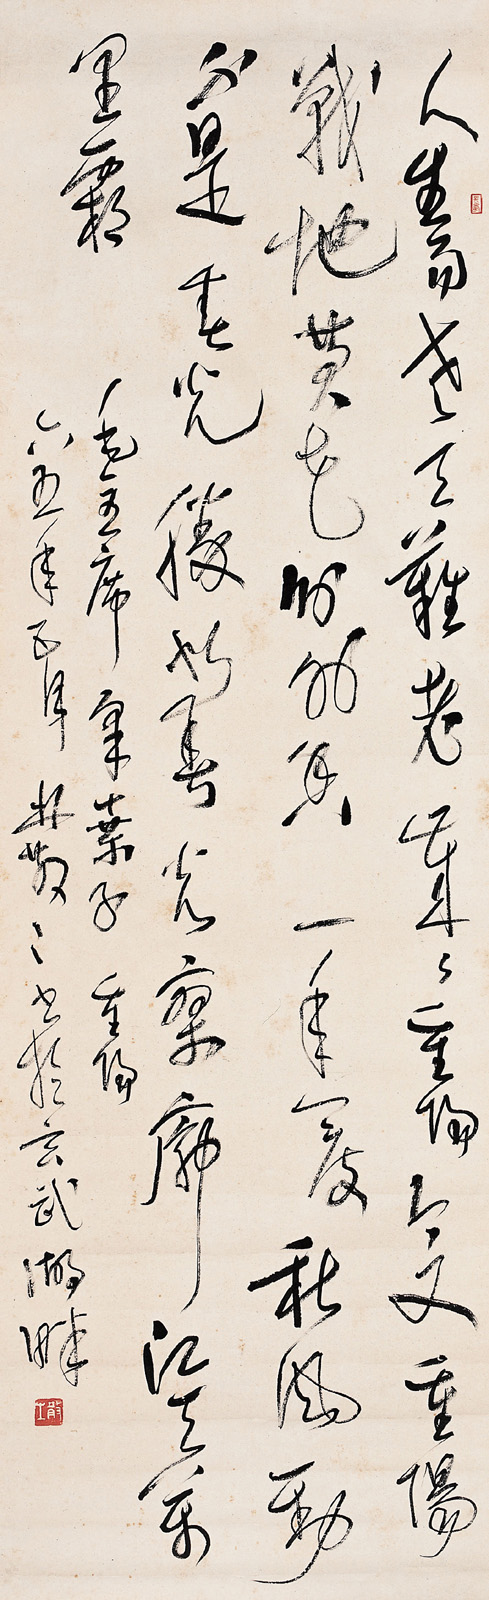 人生易老天難老歲々重陽今又重陽
戰地黄花分外香一年一度秋風勁
不是春光勝似春光寥廓江天萬
里霜
毛主席采桑子重陽
六五年五月林散之書於玄武湖畔